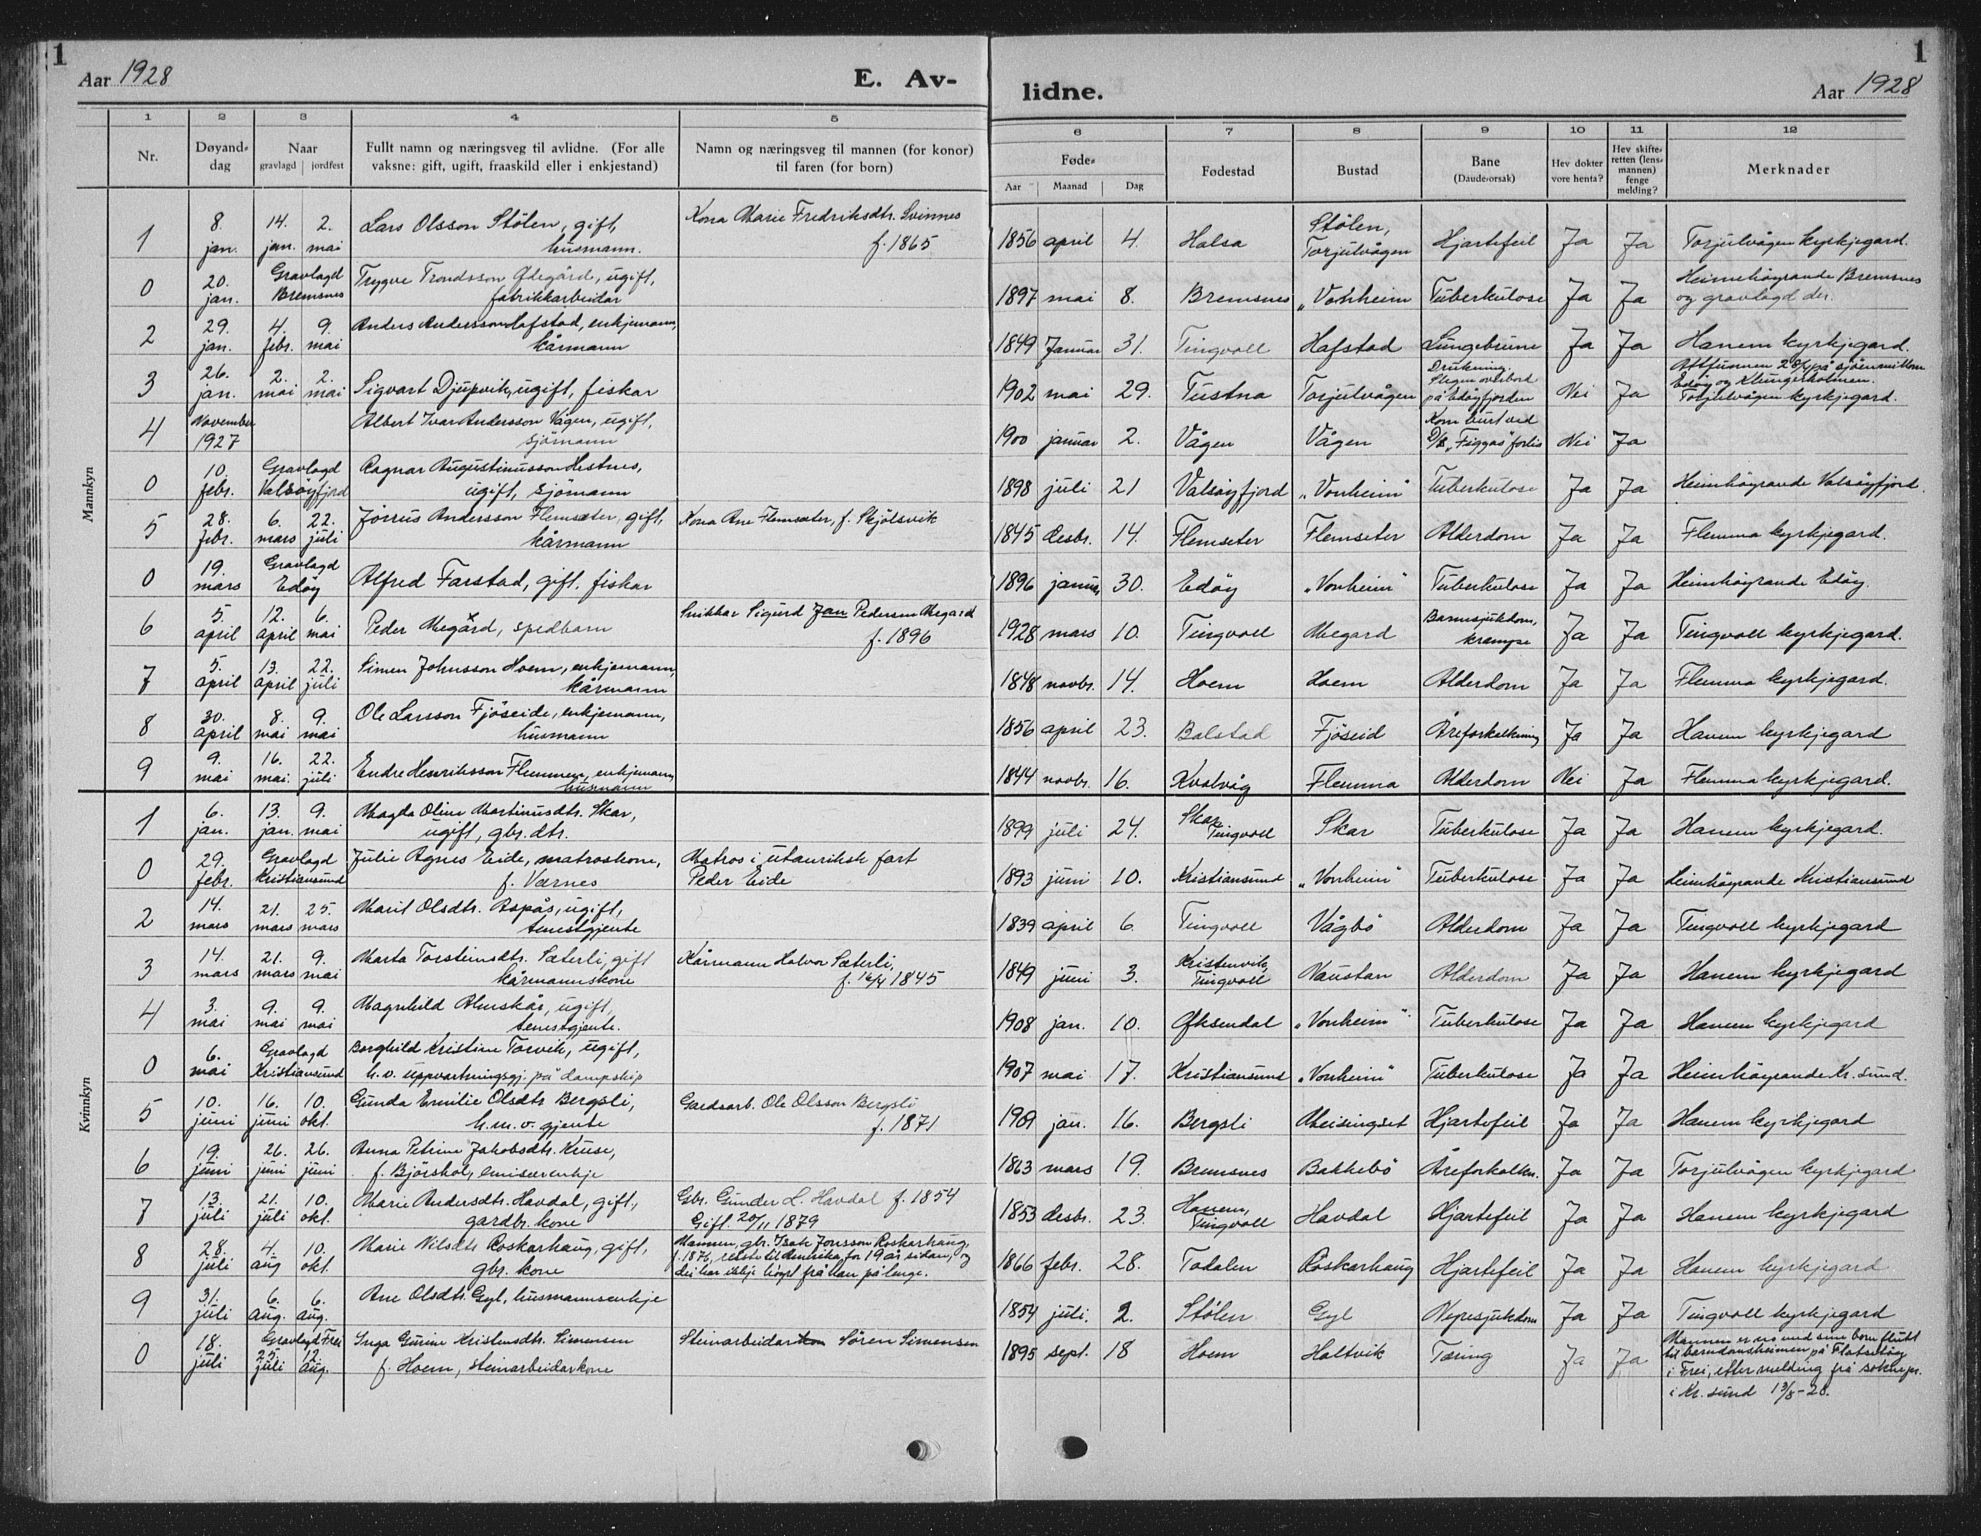 1
Aar 1928
E. Av-
lidne.
Aar 1928
1
1 2 3 4 5 6 7 8 9 10 11 12
Nr. Døyand-dag Naar gravlagd jordfest
Fullt namn og næringsveg til avlidne. (For alle
vaksne: gift, ugift, fraaskild eller i enkjestand)
Namn og næringsveg til mannen (for konor)
til faren (for born)
Føde- Aar Maanad Dag
Fødestad Bustad Bane (Daude-orsak)
Hev dokter vore henta?
Hev skifte-retten (lens-mannen) fenge melding?
Merknader
Mannkyn
1 8. jan. 14. jan. 2. mai Lars Olsson Stölen, gift, husmann. Kona Marie Fredriksdtr. Svinnes f. 1865 1856 april 4. Halsa Stölen, Torjulvågen Hjartefeil Ja Ja Torjulvågen kyrkjegard.
0 20. jan. Gravlagd Bremsnes Trygve Trondsson Ødegård, ugift, fabrikkarbeidar 1897 mai 8. Bremsnes „Vonheim Tuberkulose Ja Ja Heimehöyrande Bremsnes og gravlagd der.
2 29. jan. 4. febr. 9. mai Anders Andersson Hafstad, enkjemann, kårmann 1849 Januar 31. Tingvoll Hafstad Lungebrune Ja Ja Hanem kyrkjegard.
3 26. jan. 2. mai 2. mai Sigvart Djupvik, ugift, fiskar 1902 mai 29. Tustna Torjulvågen Drukning. Slegen overbord på Edöyfjorden Nei Ja Attfunnen 28/4 på sjöen millom Edöy og Klungerholmen. Torjulvågen kyrkjegard.
4 November 1927 Albert Ivar Andersson Vågen, ugift, sjömann 1900 januar 2. Vågen Vågen Kom burt ved D/S „Figgas" forlis Nei Ja
0 10. febr. Gravlagd Valsöyfjord Ragnar Augustinusson Hestnes, ugift, sjömann 1898 juli 21 Valsöyfjord „Vonheim" Tuberkulose Ja Ja Heimhöyrande Valsöyfjord.
5 28. febr. 6. mars 22. juli Jörrus Andersson Flemsæter, gift, kårmann Kona Ane Flemsæter, f. Skjölsvik 1845 desbr. 14. Flemseter Flemseter Alderdom Ja Ja Flemma kyrkjegard.
0 19. mars Gravlagd Edöy Alfred Farstad, gift. fiskar 1896 januar 30. Edöy „Vonheim" Tuberkulose Ja Ja Heimhöyrande Edöy.
6 5. april 12. april 6. mai Peder Megård, spedbarn Snikkar Sigurd Jan Pedersen Megard f. 1896 1928 mars 10. Tingvoll Megard Barnsjukdom, krampe Ja Ja Tingvoll kyrkjegard.
7 5. april 13. april 22. juli Simen Johnsson Hoem, enkjemann, kårmann 1848 novbr. 14. Hoem Hoem Alderdom Ja Ja Flemma kyrkjegard.
8 30. april 8. mai 9. mai Ole Larsson Fjöseide, enkjemann, husmann 1856 april 23. Balstad Fjöseid Åreforkalkning Ja Ja Hanem kyrkjegard
9 9. mai 16. mai. 22. juli Endre Henriksson Flemmen, enkjemann husmann 1844 novbr. 16. Kvalvåg Flemma Alderdom Nei Ja Flemma kyrkjegard.
Kvinnkyn
1 6. jan. 13. jan. 9. mai Magda Oline Martinusdtr. Skar, ugift, gbr.dtr. 1899 juli 24. Skar, Tingvoll Skar Tuberkulose Ja Ja Hanem kyrkjegard.
0 29. febr. Gravlagd Kristiansund Julie Agnes Eide, matroskone, f. Værnes Matros i utanriksk fart Peder Eide 1893 juni 10. Kristiansund „Vonheim" Tuberkulose Ja Ja Heimhöyrande Kristiansund
2 14. mars 21. mars 25. mars Marit Olsdtr. Aspås, ugift, tenestgjente 1839 april 6. Tingvoll Vågbö Alderdom Ja Ja Tingvoll kyrkjegard
3 14. mars 21. mars 9. mai Marta Torsteinsdtr. Sæterli, gift kårmannskone Kårmann Halvor Sæterli, f. 16/4 1845 1849 juni 3. Kristenvik, Tingvoll Naustan Alderdom Ja Ja Hanem kyrkjegard
4 3. mai 9. mai 9. mai Magnhild Almskår, ugift, tenestgjente. 1908 jan. 10. Öksendal „Vonheim" Tuberkulose Ja Ja Hanem kyrkjegard
0 6. mai Gravlagd Kristiansund Borghild Kristine Torvik, ugift, h.v. uppvartningsgj. på dampskip 1907 mai 17. Kristiansund „Vonheim" Tuberkulose Ja Ja Heimhöyrande Kr. sund.
5 10. juni 16. juni 10. okt. Gunda Emilie Olsdtr Bergsli, h.m.v. gjente Gardsarb. Ole Olsson Bergsli f. 1871 1909 jan. 16. Bergsli Meisingset Hjartefeil Ja Ja Hanem kyrkjegard
6 19. juni 26. juni 26. juni Anna Petrine Jakobsdtr. Kruse, f. Björshol, emisærenkje 1863 mars 19. Bremsnes Bakkebö Åreforkalkn. Ja Ja Torjulvågen kyrkjegard
7 13. juli 21. juli 10. okt. Marie Andersdtr. Havdal, gift, gardbr. kone Gbr. Gunder L. Havdal f. 1854 Gift 20/11 1879 1853 desbr. 23. Hanem, Tingvoll Havdal Hjartefeil Ja Ja Hanem kyrkjegard
8 28. juli 4. aug 10. okt. Marie Nilsdtr Roskarhaug, gift, gbr. kone Mannen, gbr. Isak Jonsson Roskarhaug, f. 1876, reiste til Amerika for 19 år sidan, og dei har ikkje höyrt frå han på lenge. 1866 febr. 28. Todalen Röskarhaug Hjartefeil Ja Ja Hanem kyrkjegard
9 31. juli 6. aug. 6. aug. Ane Olsdtr. Gyl, husmannsenkje 1854 juli. 2. Stölen Gyl Nyresjukdom Ja Ja Tingvoll kyrkjegard
0 18. juli Gravlagd Frei 25. juli 12. aug. Inga Gurine Kristensdtr. Simensen f. Hoem, steinarbeidarkone Steinarbeidar Sören Simensen 1895 sept. 18 Hoem Holtvik Tæring Ja Ja Mannen er no med sine born flutt til barndomsheimen på Flatsetöy i Frei, etter melding frå soknepr. i Kr. sund 13/8-28.